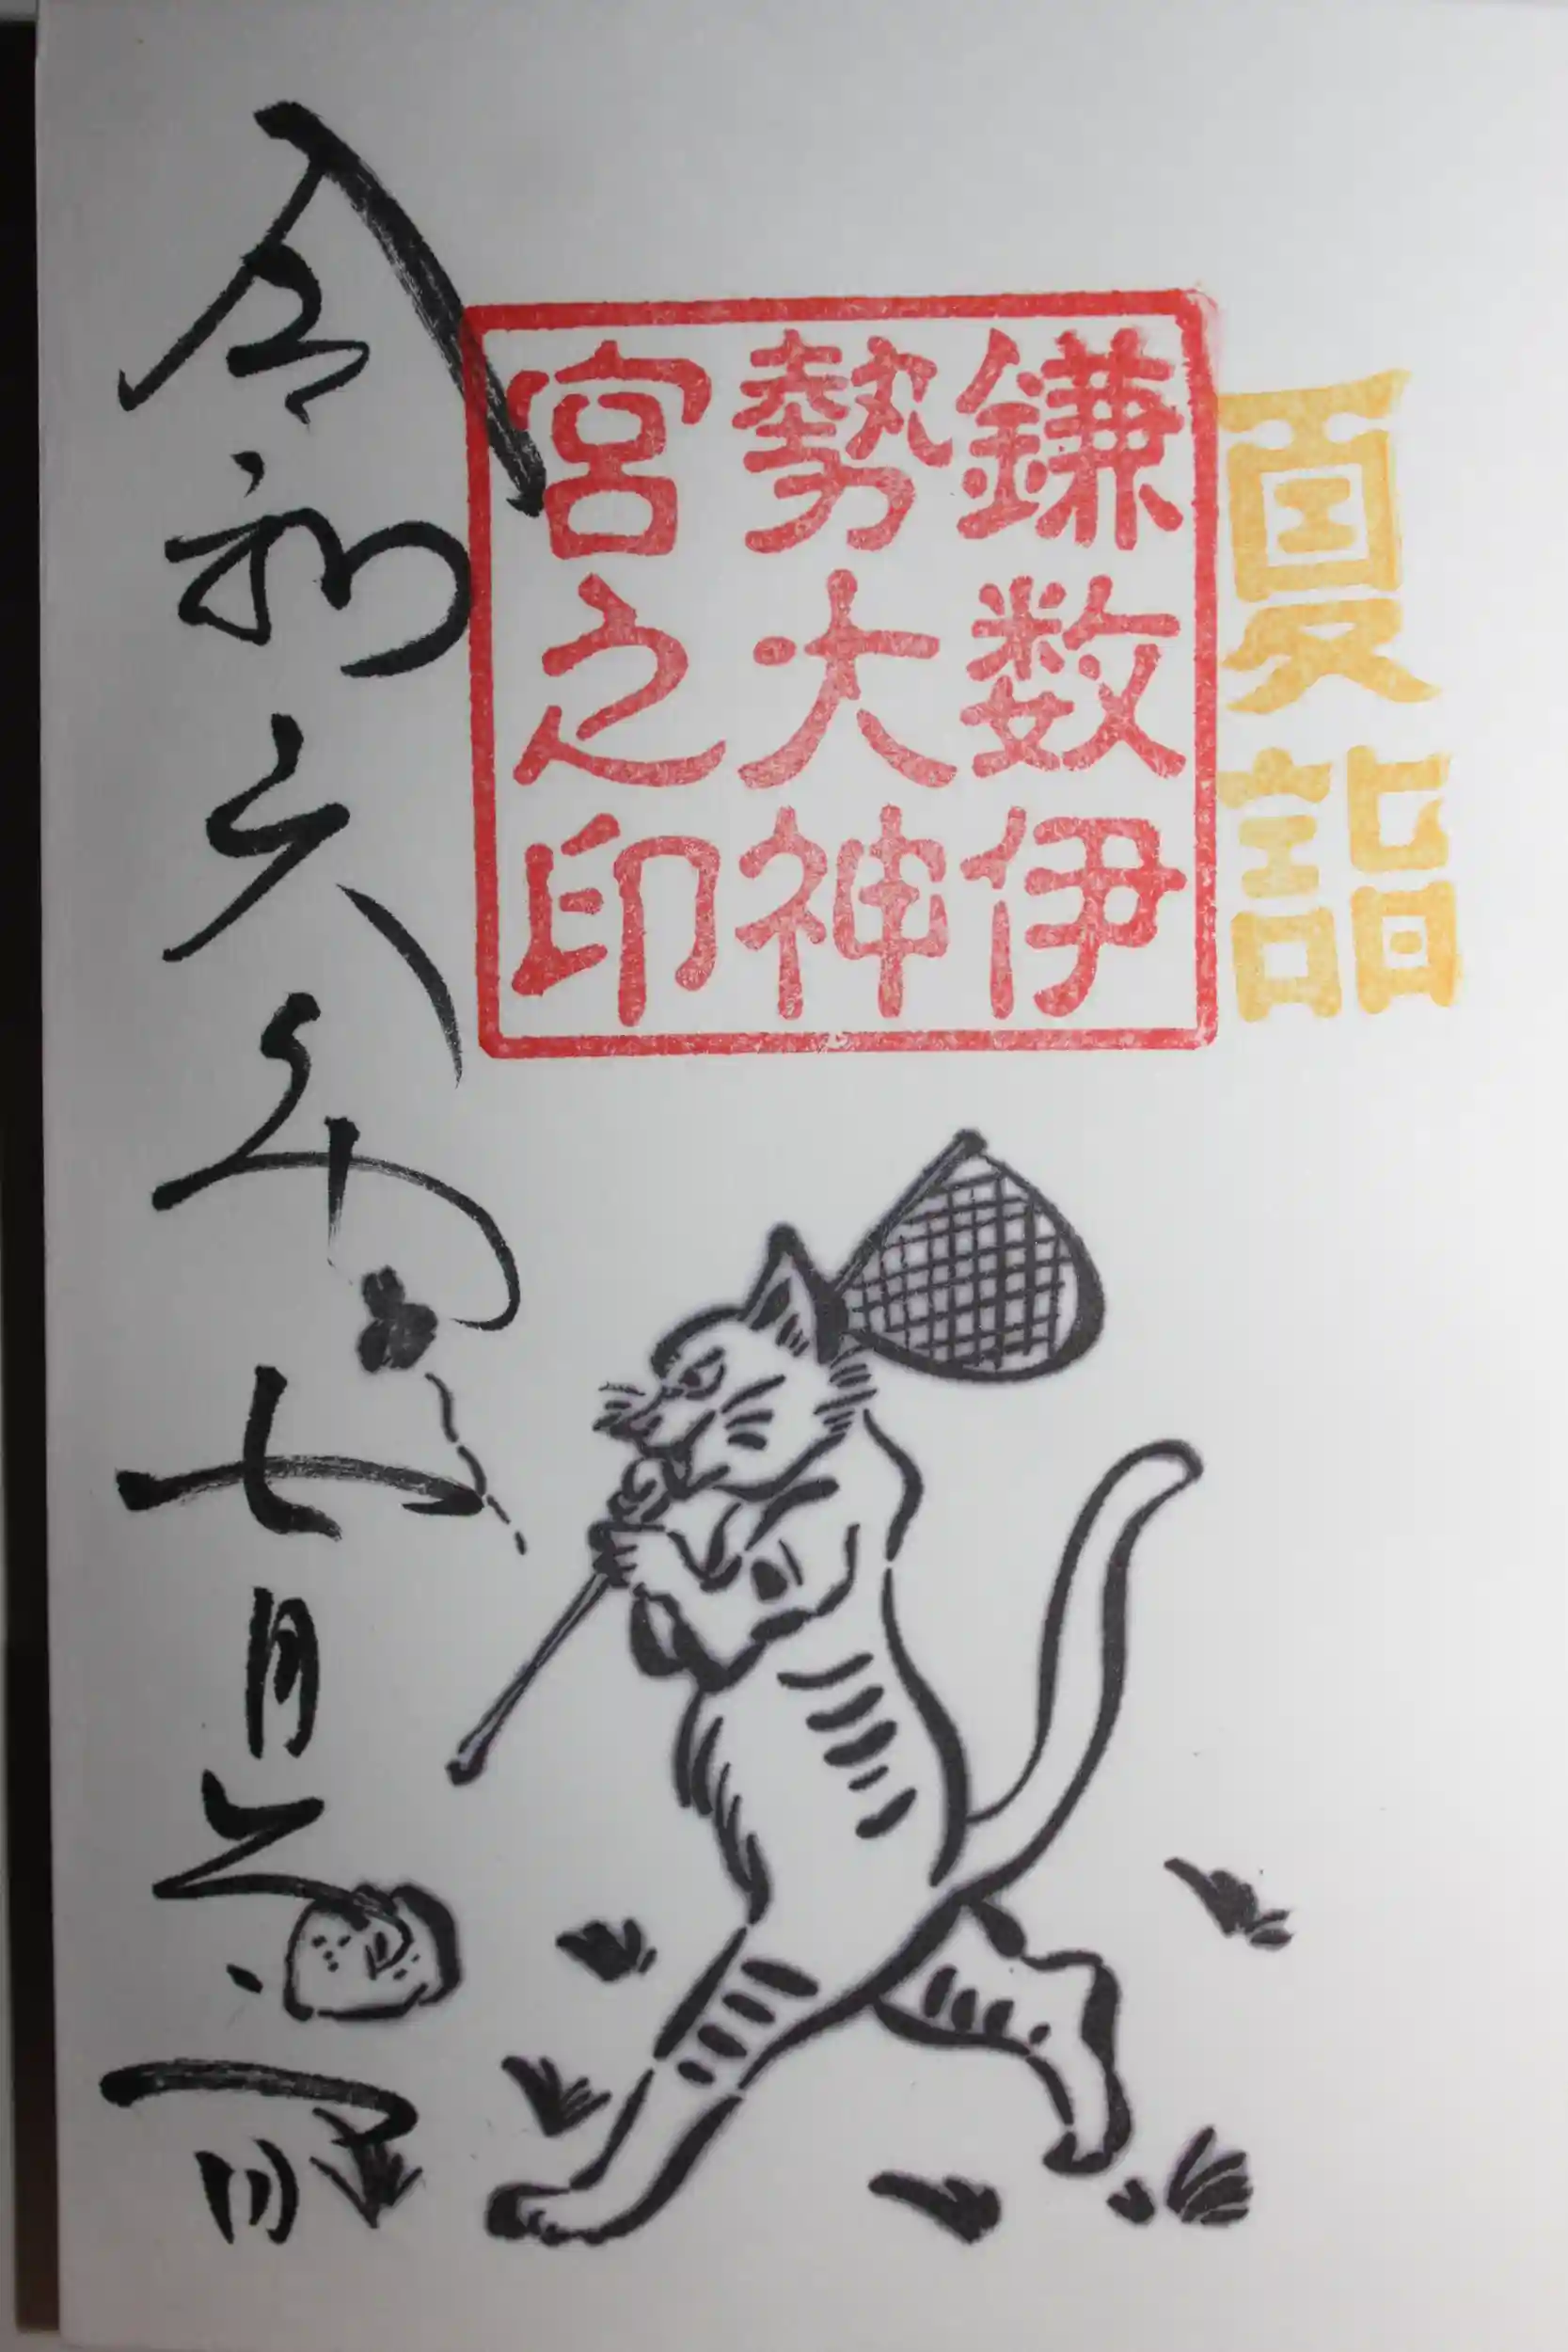 夏詣
鎌数伊
勢大神
宮之印
令和六年七月日